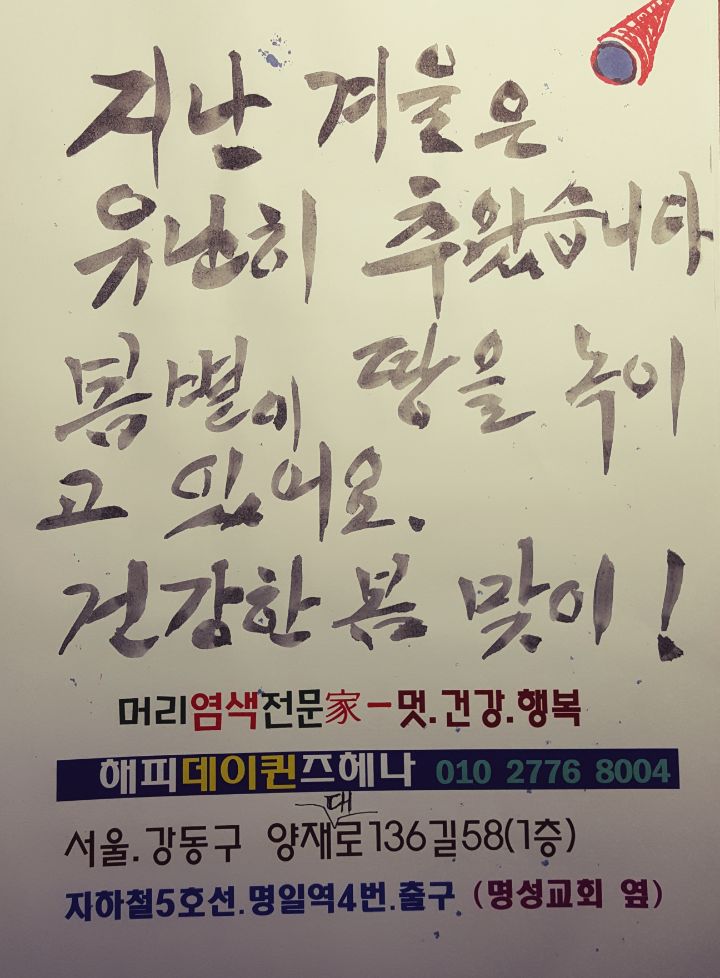 지난 겨울은
유난히 추웠습니다
봄볕이 땅을 녹이
고 있어요.
건강한 봄 맞이!
머리염색전문家-멋.건강.행복
해피데이퀸즈헤나 010 2776 8004
대
서울.강동구 양재로136길58(1층)
지하철5호선.명일역4번.출구 (명성교회 옆)